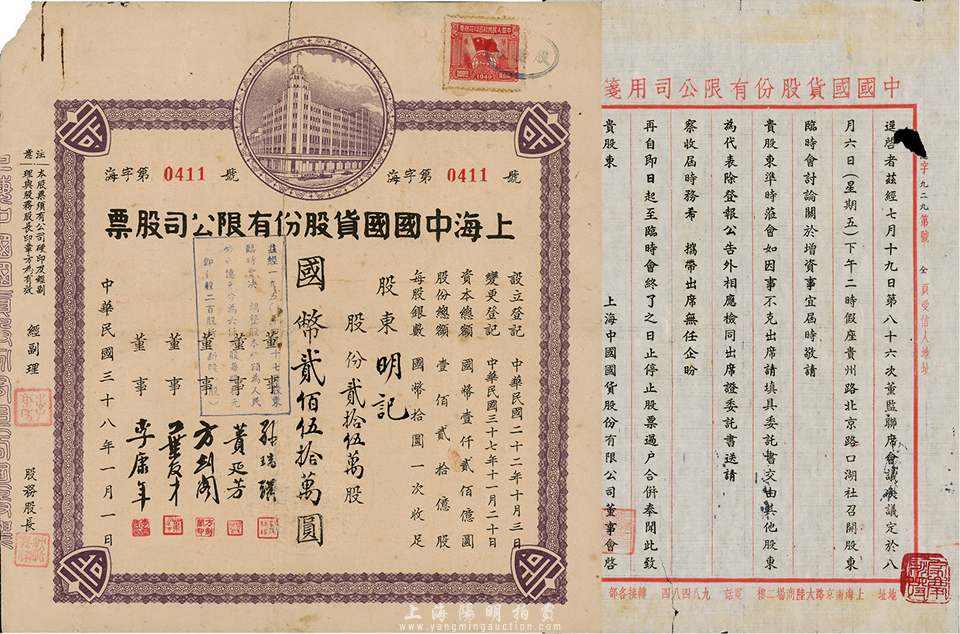 海字第 0411 號
海字第 0411 號
上海中國國貨股份有限公司股票
設立登記 中華民國二十二年十月三日
變更登記 中華民國三十七年十一月二十日
資本總額 國幣壹仟貳佰億圓
股份總額 壹佰貳拾億股
每股銀數 國幣拾圓一次收足
股東 明記
股份貳拾伍萬股
國幣貳佰伍拾萬圓
董事
董事 黃延芳
董事 方劍閣
董事
董事 李康年
中華民國三十八年一月一日
經副理
股務股長
注意
本股票須有公司硬印及經副
理與股務股長印章方為有效
1949
中國國貨股份有限公司用箋
字九二九第號 全頁受信人地址
逕啓者茲經七月十九日第八十六次董監聯席會議決議定於八
月六日(星期五)下午二時假座貴州路北京路口湖社召開股東
臨時會討論關於增資事宜屆時敬請
貴股東準時蒞會如因事不克出席請填具委託書交由其他股東
為代表除登報公告外相應檢同出席證委託書送請
察收屆時務希 攜帶出席無任企盼
再自即日起至臨時會終了之日止停止股票過戶合併奉聞此致
貴股東
上海中國國貨股份有限公司董事會啓
地址 上海南京路大陸商場二樓 電話 九八四八四 轉接各部
上海陽明拍賣
www.yangmingauction.com